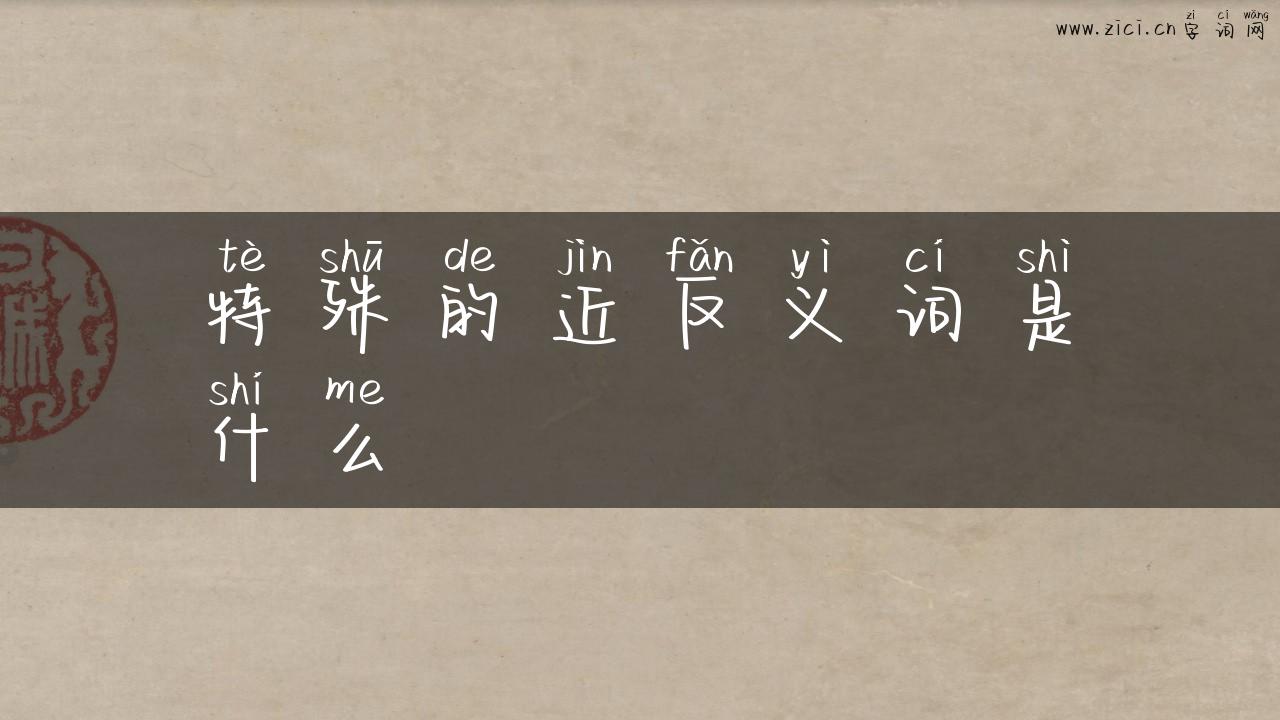 zì cí wǎng
www.zici.cn字词网
tè shū de jìn fǎn yì cí shì
特殊的近反义词是
shí me
什么